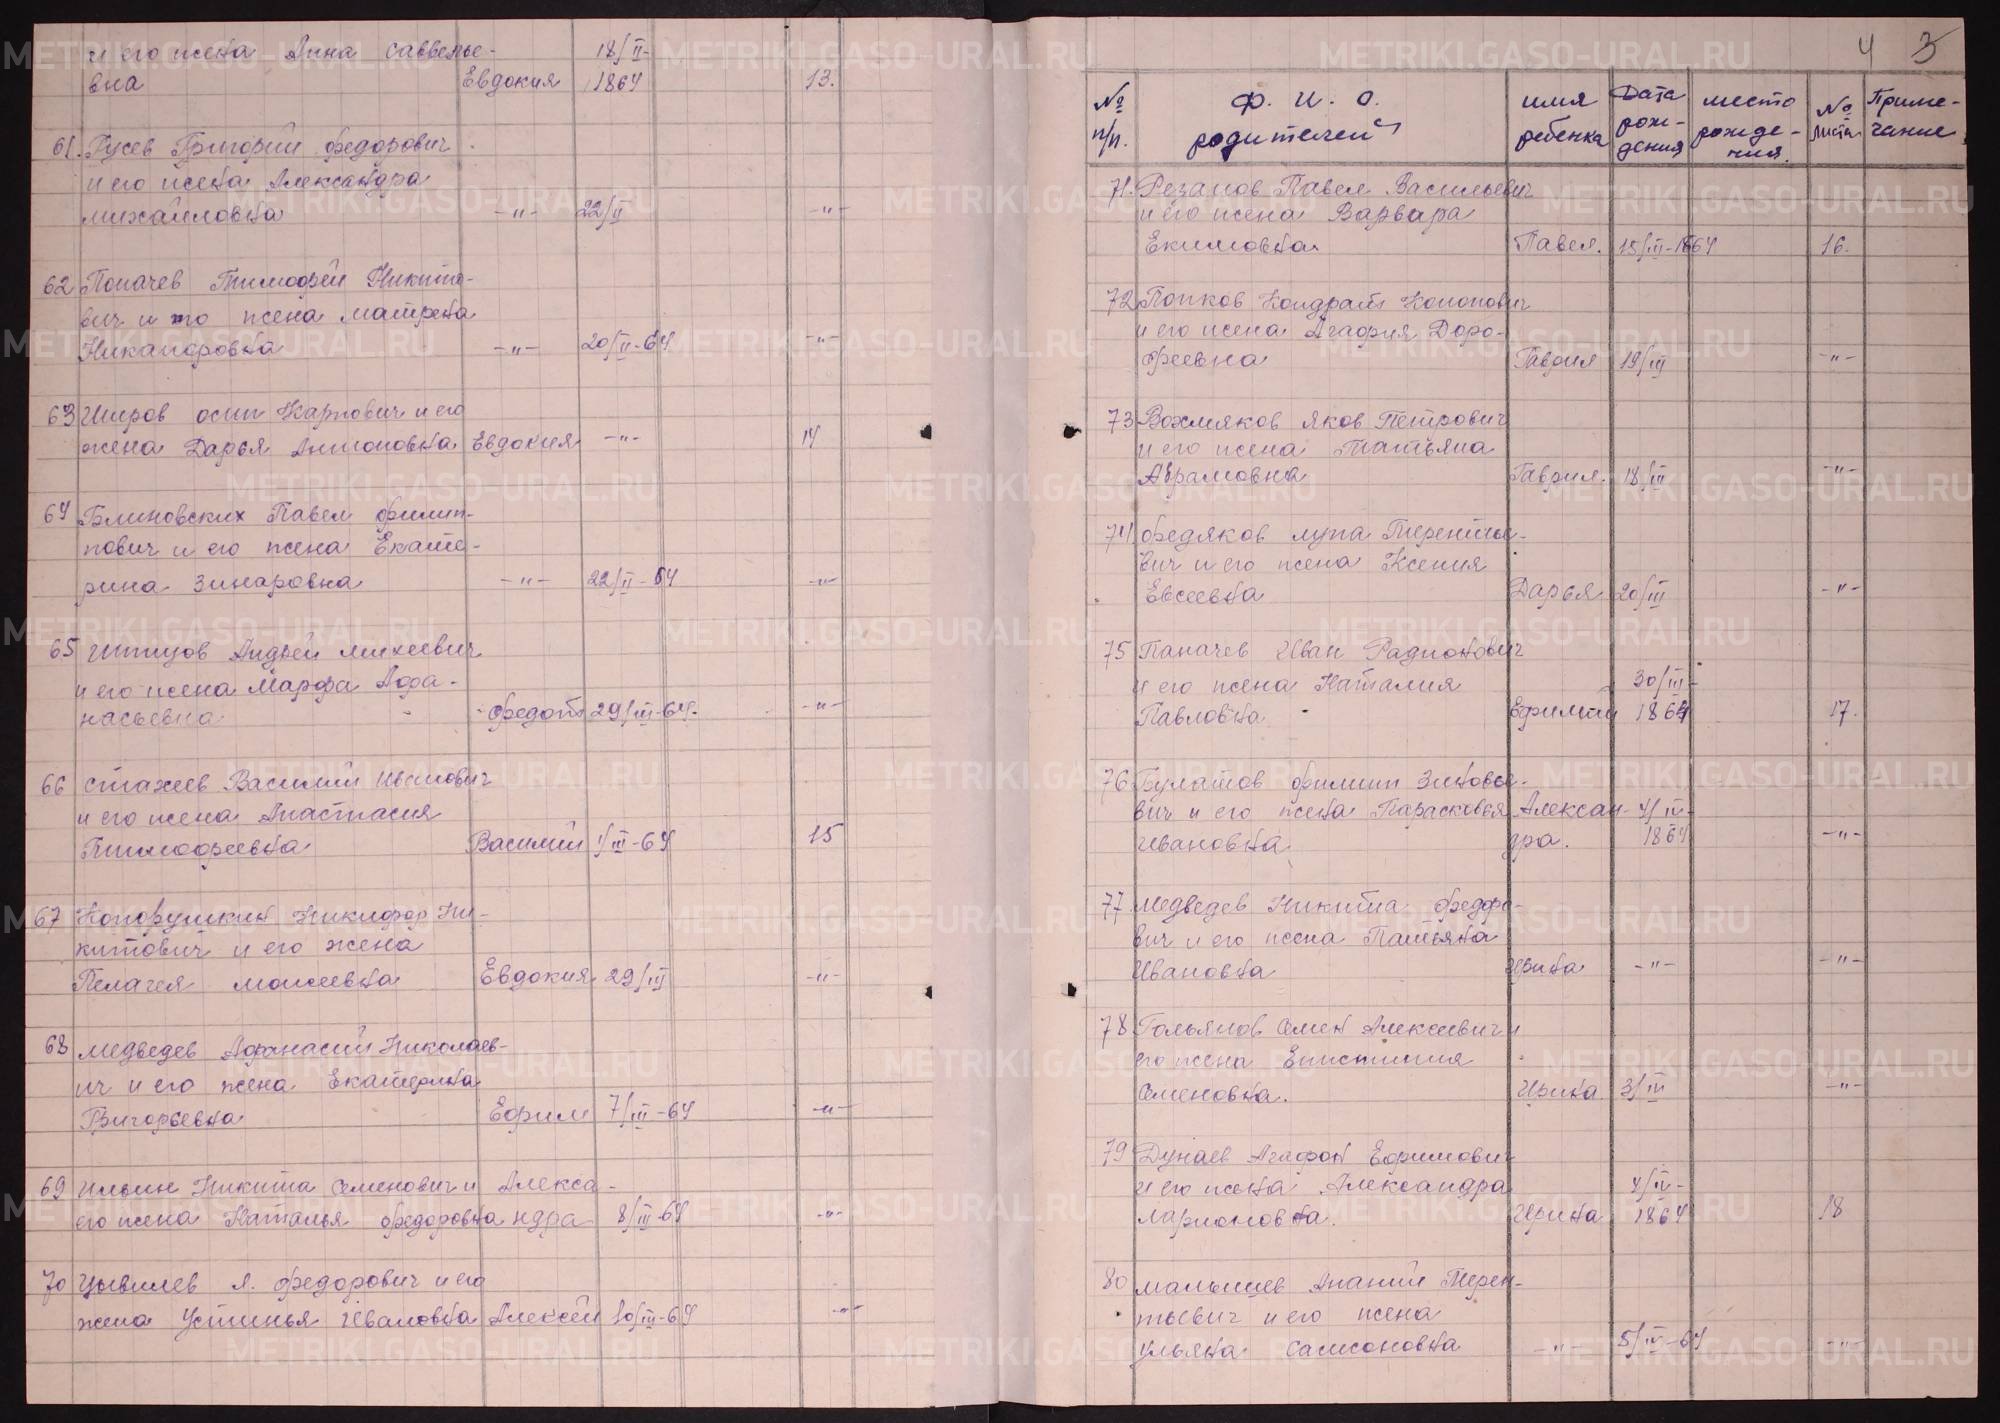 и его жена Анна Саввелье-
18/II-
вна Евдокия 1864 13.
61. Гусев Григорий Федорович
и его жена Александра
Михайловна -"- 22/II -"-
62 Попачев Тимофей Никито-
вич и его жена Матрена
Никаноровна -"- 20/II-64 -"-
63 Широв Осип Карпович и его
жена Дарья Антоновна Евдокия -"- 14
64 Блиновских Павел Филип-
пович и его жена Екате-
рина Зинаровна -"- 22/II-64 -"-
65 Андрей Михеевич
и его жена Марфа Афа-
насьевна Федот 29/III-64. -"-
66 Стахеев Василий Иванович
и его жена Анастасия
Тимофеевна Василий 1/III-64 15
67 Никифор Ни-
китович и его жена
Пелагея Моисеевна Евдокия 29/III -"-
68 Медведев Афанасий Николаев-
ич и его жена Екатерина
Григорьевна Ефрим 7/III-64 -"-
69 Ильин Никита Семенович и Алекса-
его жена Наталья Федоровна ндра 8/III-64 -"-
70 Цывилев Я. Федорович и его
жена Устинья Ивановна Алексей 10/III-64 -"-
4 3
№ п/п. Ф. И. О. родителей имя ребенка Дата рож-дения место рожде-ния. № листа Приме-чание
71. Резанов Павел Васильевич
и его жена Варвара
Екимовна Павел. 15/III-1864 16.
72 Попков Кондрат Кононович
и его жена Агафия Доро-
феевна Гаврил 19/III -"-
73 Вохмяков Яков Петрович
и его жена Татьяна
Абрамовна Гаврил. 18/III -"-
74 Федяков Лупа Терентье-
вич и его жена Ксения
Евсеевна Дарья 20/III -"-
75 Паначев Иван Радионович
и его жена Наталия 30/III-
Павловна Ефимий 1864 17.
76 Булатов Филипп Зиновье-
вич и его жена Парасковья Алексан- 4/IV-
Ивановна дра. 1864 -"-
77. Медведев Никита Федоро-
вич и его жена Татьяна
Ивановна Ирина -"- -"-
78 Гольянов Семен Алексеевич и
его жена Епистимия
Семеновна. Ирина 3/III -"-
79 Дунаев Агафон Ефимович
и его жена Александра 4/IV-
Ларионовна. Ирина 1864 18
80 Малышев Ананий Терен-
тьевич и его жена
Ульяна Самсоновна -"- 5/IV-64 -"-
METRIKI.GASO-URAL.RU